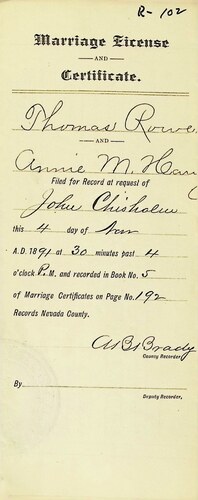 R-102
Marriage License
AND
Certificate.
Thomas Rowe
AND
Annie M. Han
Filed for Record at request of
John Chisholm
this 4 day of Nov
A.D. 1891 at 30 minutes past 4
o'clock P.M. and recorded in Book No. 5
of Marriage Certificates on Page No. 192
Records Nevada County.
A B Brady
County Recorder
By
Deputy Recorder.